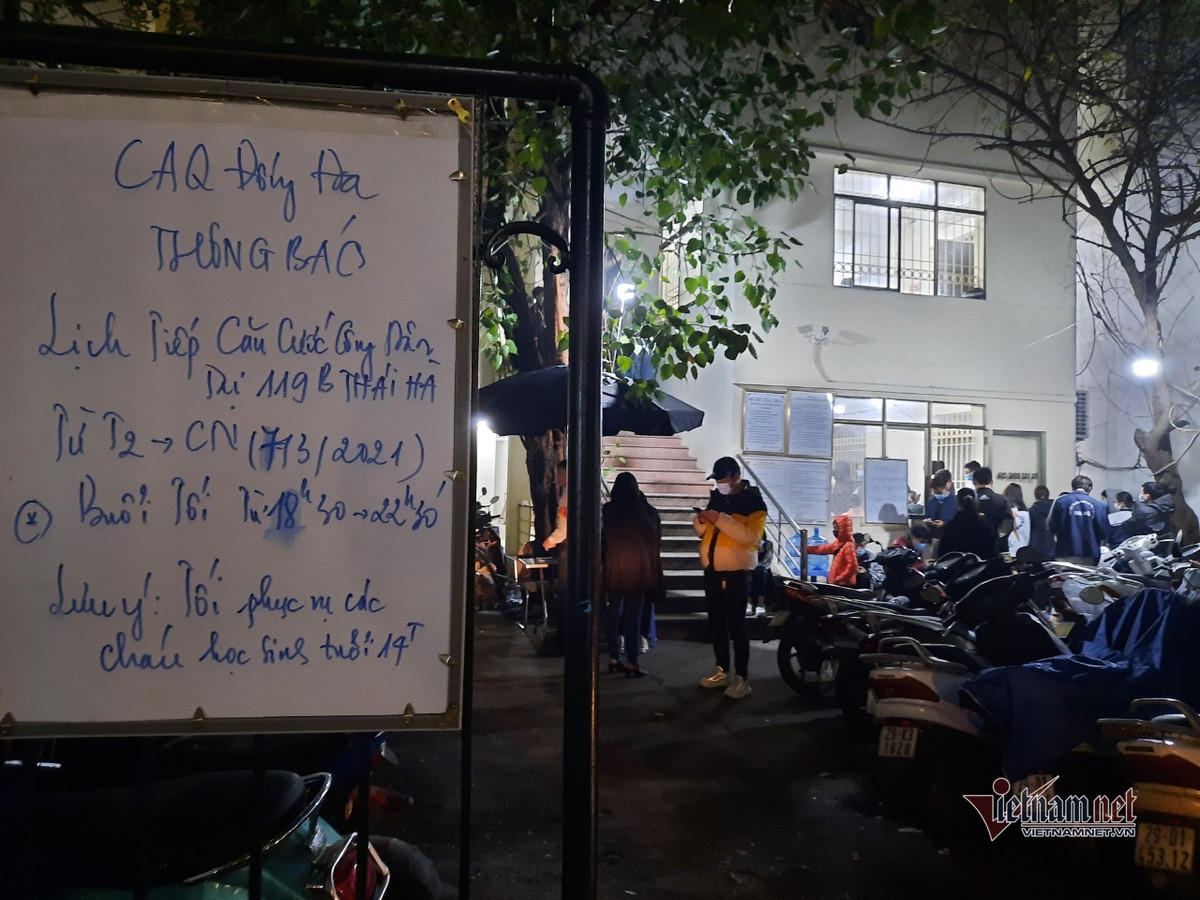 CAQ Đống Đa
THÔNG BÁO
Lịch Tiếp Căn Cước Công Dân
Tại 119B THÁI HÀ
Từ T2 → CN (7/3/2021)
(*) Buổi Tối Từ 18h30 → 22h30
Lưu ý: Tối phục vụ các
cháu học sinh tuổi 14T
29-K3
1828
29-D1
453.12
Vietnamnet
VIETNAMNET.VN